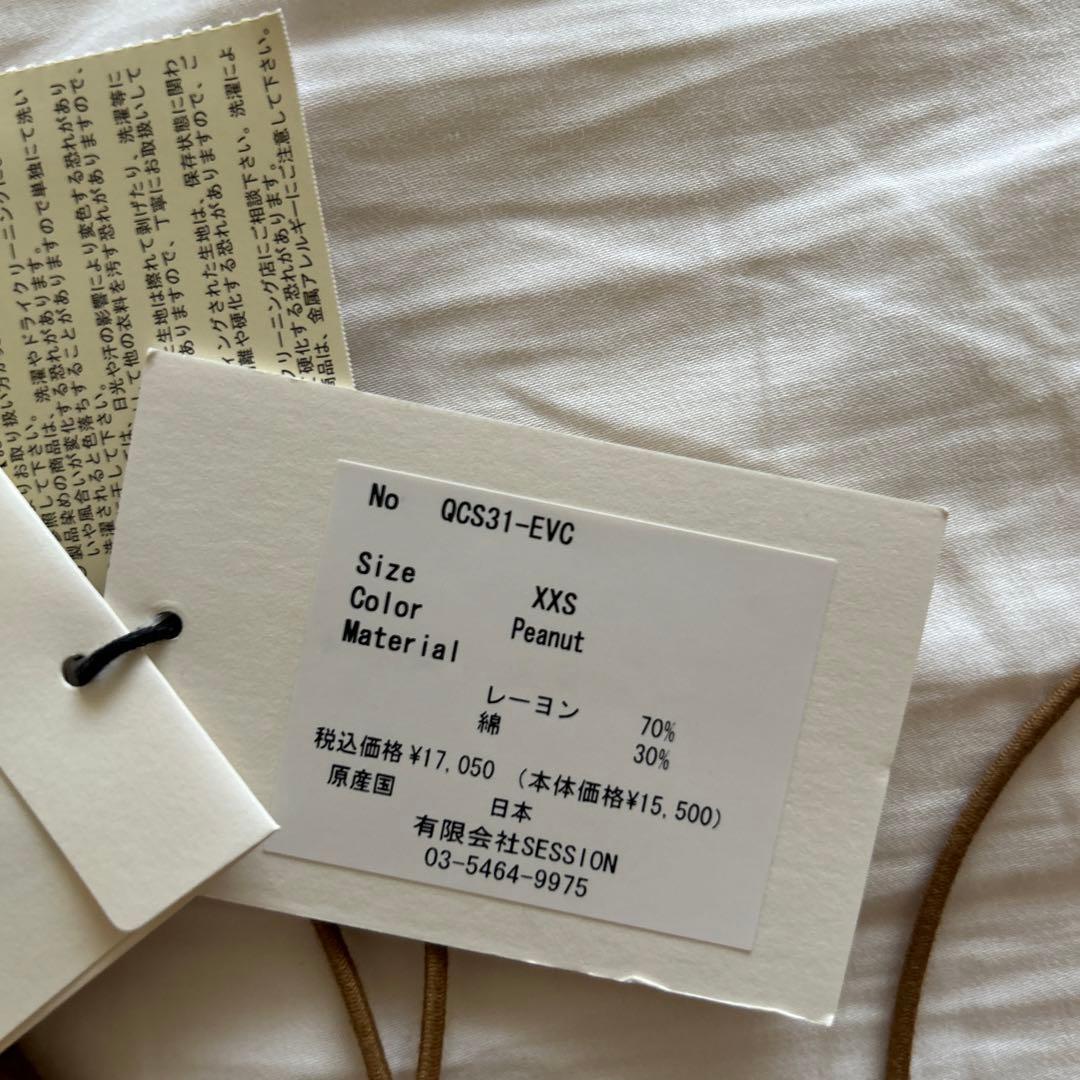 No QCS31-EVC
Size XXS
Color Peanut
Material
レーヨン 70%
綿 30%
税込価格 ¥17,050 (本体価格¥15,500)
原産国 日本
有限会社SESSION
03-5464-9975
お取り扱い方が
照して下さい。 洗濯やドライクリーニングに
製品染めの商品は、 する恐れがあります。
いや風合いが変化することがありますので単独にて洗い
洗濯されると色落ち
干して下さい。 日光や汗の影響により変色する恐れがあり
して他の衣料を汚す恐れがありますので、
生地は擦れて剥げたり、 洗濯等に
ありますので、 丁寧にお取扱いして
ィングされた生地は、 保存状態に関わ
離や硬化する恐れがありますので、こ
クリーニング店にご相談下さい。 洗濯によ
硬化する恐れがあります。
商品は、 金属アレルギーにご注意して下さい。